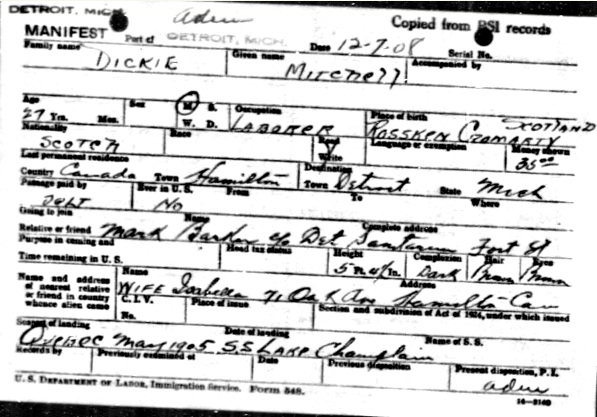 DETROIT, MICH. adm Copied from BSI records
MANIFEST Port of DETROIT, MICH. Date 12-7-08 Serial No.
Family name Given name Accompanied by
DICKIE Mitchell
Age Sex M S. Occupation Place of birth SCOTLAND
27 Yrs. Mos. W. D. LABORER ROSSKEN CROMARTY
Nationality Race Read Language or exemption Money shown
SCOTCH Write 35.00
Last permanent residence Destination
Country Canada Town Hamilton Town Detroit State Mich
Passage paid by Ever in U. S. From To Where
Self No
Going to join Name Complete address
Relative or friend Mark Barker c/o Det Sanitarium Fort St
Purpose in coming and Head tax status Height Complexion Hair Eyes
Time remaining in U. S. 5 Ft. In. Dark Brown Brown
Name and address of nearest relative or friend in country whence alien came Name Address
WIFE 71 Oak Ave Hamilton Can
C. I. V. Place of issue Section and subdivision of Act of 1924, under which issued
No.
Seaport of landing Date of landing Name of S. S.
Quebec May 1905 S.S LAKE Champlain
Records by Previously examined at Date Previous disposition Present disposition, P. I.
adm
U. S. DEPARTMENT OF LABOR, Immigration Service. Form 548. 14-2140